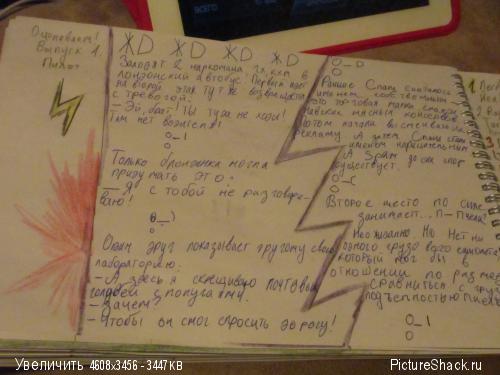 Оцениваем!
Выпуск 1.
Пилот
ЖD ЖD ЖD ЖD
Заходят 2 наркомана в
лондонский автобус. Первый идет
на второй этаж тут же возвращается
с тревогой:
- Эй, брат! Ты туда не ходи!
Там нет водителя!
O_I
O
Только блондинка могла
придумать это -
- Я с тобой не разговари-
ваю!
Один друг показывает другому свою
лабораторию:
- А здесь я скрещиваю почтовых
голубей с попугаями.
- Зачем?
- Чтобы он смог спросить дорогу!
O
Раньше Спам считалось
именем собственным
это торговая марка
мясных консервов
потом начали
рекламу. А затем Спам стал
именем нарицательным
А Spam до сих пор
существует.
O_(
O
Второе место по силе
занимает... П- Пчела!
Неожиданно. Но. Нет ни
одного грузового самолета
который мог бы в
отношении по разме
сравниться с груз
подъемностью пчел
O_I
O
1
2
Увеличить 4608x3456 - 3447KB
PictureShack.ru